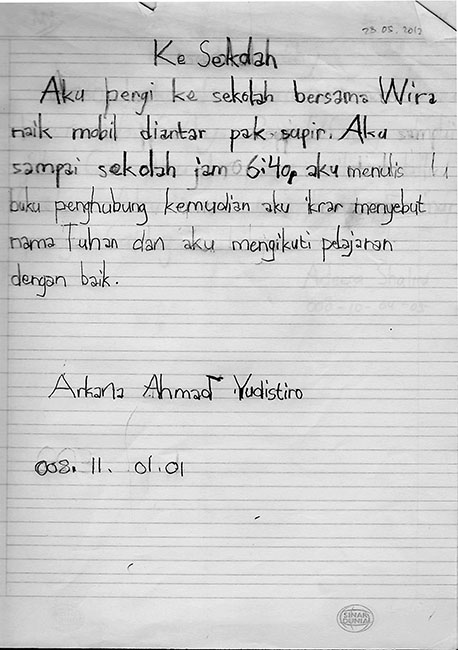 23.05.2012
Ke Sekolah
Aku pergi ke sekolah bersama Wira
naik mobil diantar pak supir. Aku
sampai sekolah jam 6:40, aku menulis
buku penghubung kemudian aku ikrar menyebut
nama Tuhan dan aku mengikuti pelajaran
dengan baik.
Arkana Ahmad Yudistiro
008. 11. 01.01
SINAR
DUNIA